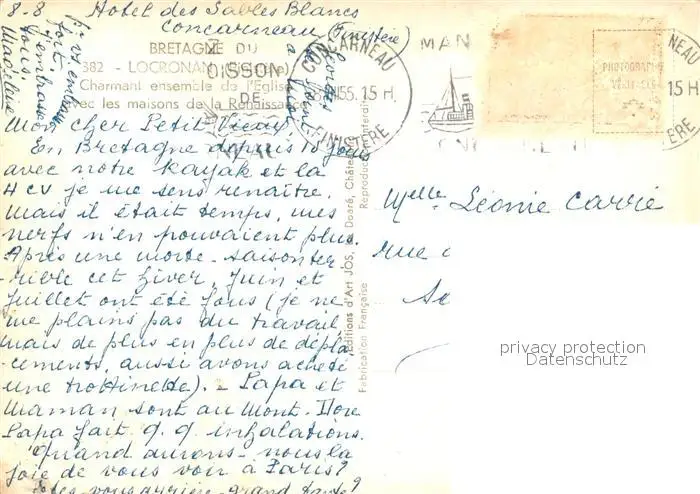 8-8 Hotel des Sables Blancs
Concarneau (Finistère)
BRETAGNE DU
382 - LOCRONAN
Charmant ensemble de l'Eglise
avec les maisons de la Renaissance
MOISSON
DE
CONCARNEAU
15 H
55
FINISTERE
MAN
NEAU
15 H
ERE
PHOTOGRAPHE
Mon cher Petit Vieux
En Bretagne depuis 15 jours
avec notre kayak et la
4 cv je me sens renaître.
Mais il était temps, mes
nerfs n'en pouvaient plus.
Après une morte-saison ter
-rible cet hiver, Juin et
Juillet ont été fous (je ne
me plains pas du travail
mais de plus en plus de dépla
-cements, aussi avons acheté
une trottinette). - Papa et
Maman sont au Mont. Dore
Papa fait q.q. inhalations.
Quand aurons-nous la
joie de vous voir à Paris?
Etes-vous arrière-grand tante?
vs embrasse
fort.
J'embrasse
tous.
Madeleine
Editions d'Art JOS, Doaré, Châteaulin
Reproduction interdite
Fabrication Française
Melle Léonie Carrié
rue
privacy protection
Datenschutz